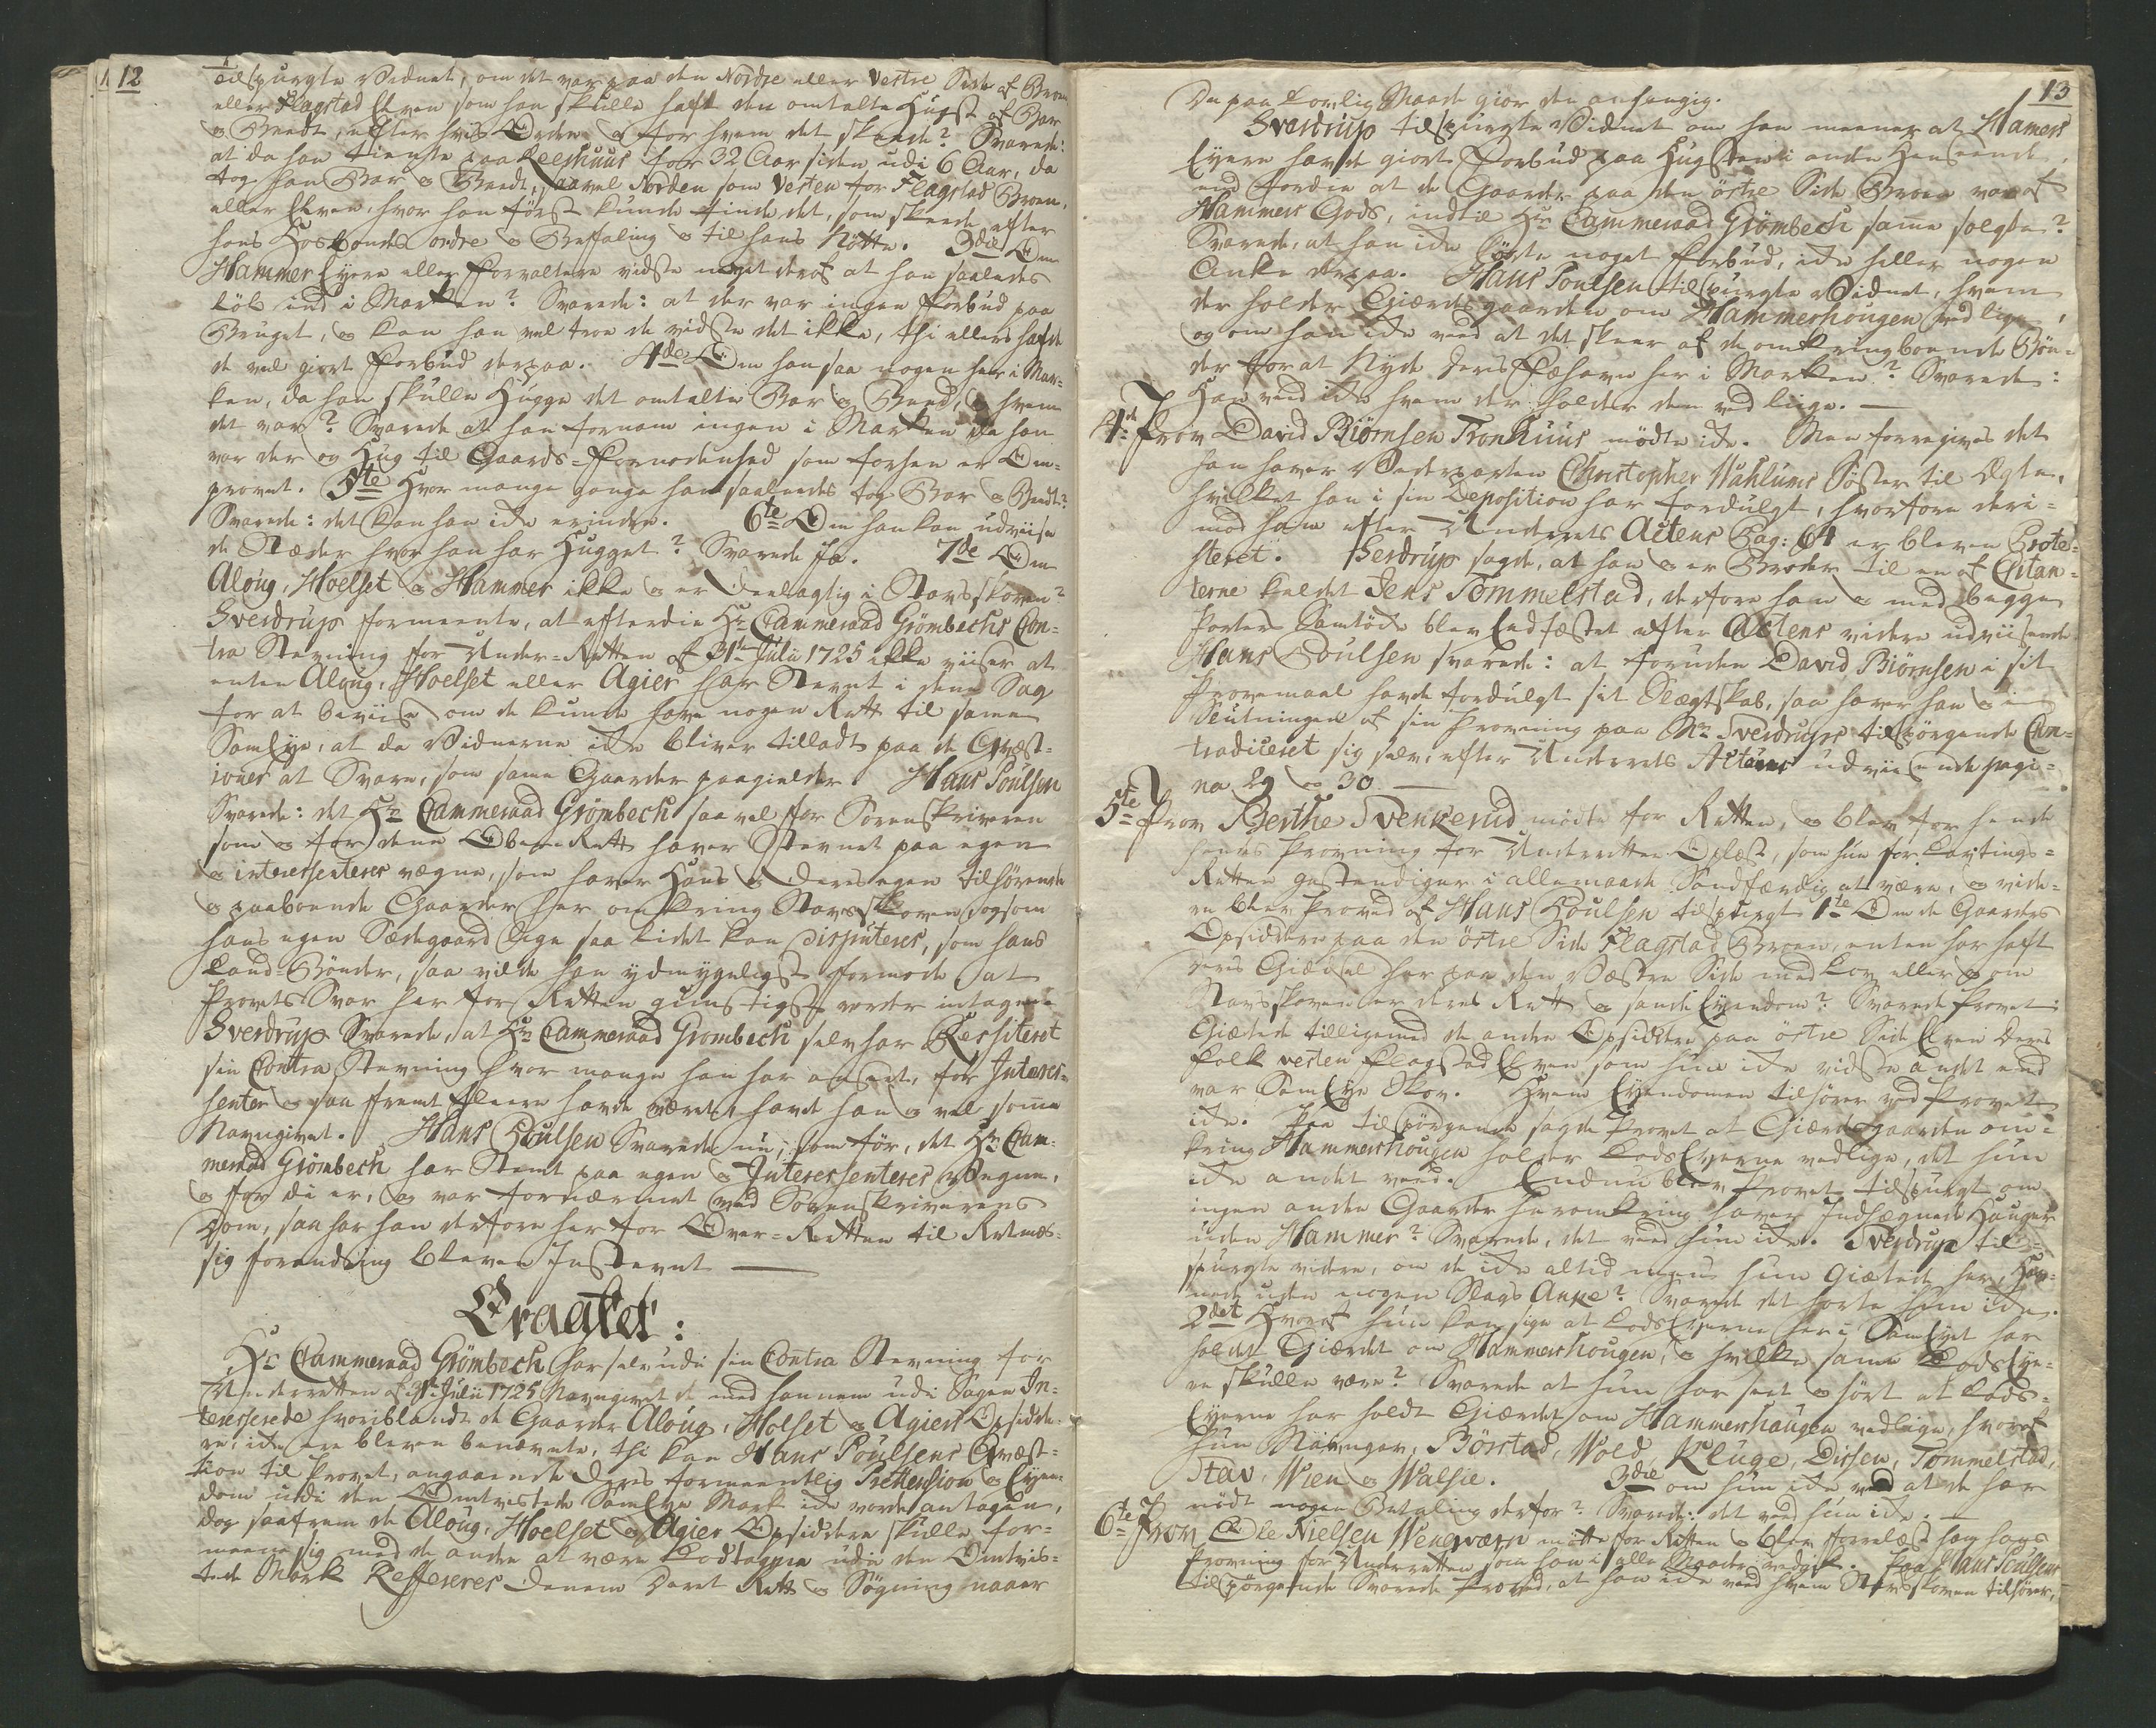 12
tilspurgte Vidnet, om det var paa den Nordre eller Vestre Side af Broen
eller Flagstad Elven som han skulle haft den omtalte Hugst af Bar
og Brendt, efter hvis Ordre og for hvem det skeede? Svarede:
at da han tiente paa Reeshuus for 32 Aar siden udi 6 Aar, da
tog han Bar og Brendt, saavel Norden som Vesten for Flagstad Broen,
eller Elven, hvor han først kunde finde det, som skeede efter
hans Hosbonds ordre og Befaling og til hans Nøtte. 3die Om
Hammer Eyere eller Forvaltere vidste noget deraf at han saaledes
løb ind i Marken? Svarede: at der var ingen Forbud paa
Bruget, og kan han vel troe de vidste det ikke, thi ellers hafde
de vel giort Forbud derpaa. 4de Om han saa nogen her i Mar-
ken, da han skulle Hugge det omtalte Bar og Brend, og hvem
det var? Svarede at han fornam ingen i Marken da han
var der og Hug til Gaards-Fornødenhed som forhen er Om-
provet. 5te Hvor mange gange han saaleedes tog Bar og Brendt?
Svarede: det kan han icke erindre. 6te Om han kan udviise
de Stæder hvor han har Hugget? Svarede Ja. 7de Om
Aloug, Hoelset og Hammer ikke og er deelagtig i Stavsskoven?
Sverdrup formeente, at efterdie Hr Cammeraad Grømbechs Con-
tra Stevning for Under-Retten af 31te Julii 1725 ikke viiser at
enten Aloug, Hoelset eller Agier har Stevnt i denne Sag
for at beviise om de kunde have nogen Rett til samme
SamEye, at da Vidnerne icke bliver tilladt paa de Qvæst-
ioner at Svare, som samme Gaarder paagielder. Hans Poulsen
Svarede: det Hr Cammeraad Grømbech saa vel for Sorenskriveren
som og for denne Obere Rett haver Stevnet paa egen
og interessenteres vægne, som haver Hans og deres egen tilhørende
og paaboende Gaarder her omkring Stavsskoven ogsom
hans egen Sædegaard lige saa lidet kan disputeres, som hans
Land Bønder, saa vilde han ydmygeligst formode at
Provets Svar her for Retten gunstigst vorder intagne
Sverdrup Svarede, at Hr Cammeraad Grombech selv har Ressiteret
sin Contra Stevning hvor mange han har anseet, for Interes-
senter og saa fremt fleere havde været, havde han og vel samme
Navngivet. Hans Poulsen Svarede nu, som før, det Hr Cam-
meraad Grømbech har Stevnt paa egen og Interessenteres vegne,
og for di er, og var fornærmet ved Sorenskriverens
Dom, saa har han derfore her for Over-Retten til Retmæs-
sig forandring bleven Instevnt
Eragtet:
Hr Cammeraad Grømbech har selv udi sin Contra Stevning for
Underretten af 31te Julii 1725 Navngivet de med hannem udi Sagen In-
teresserede hvoriblandt de Gaarder Aloug, Holset og Agiers Opsidde-
re, icke ere bleven benævnte, thi kan Hans Poulsens Qvæst-
tion til Provet, angaaende deres formeentlig Prettension og Eyen-
dom udi den Omtvistede SamEye Mark icke vorde antagen,
dog saafrem de Aloug, Hoelset og Agier Opsiddere skulle for-
meene sig med de andre at være Lodtagere udi den Omtvis-
tede Mark Refferers dennem Deres Rett og Søgning naaer
13
De paa Lovlig Maade giør den anhængig.
Sverdrup tilspurgte Vidnet om han meener at Hamers
Eyere havde giort Forbud paa Hugsten i anden Henseende,
end fordie at de Gaarder paa den østre Side Broen var af
Hammers Gods, indtil Hr Cammeraad Grømbech samme solgte?
Svarede, at han icke hørte noget Forbud, icke heller nogen
Anke derpaa. Hans Poulsen tilspurgte Vidnet, hvem
der holder Giærdesgaarden om Hammerhougen ved lige,
og om han icke veed at det skeer af de omkringboende Bøn-
der for at Nyde deres Fæhavn her i Marken? Svarede:
Han veed icke hvem der holder dem ved liige.
4de Prov David Biørnsen Tronhuus mødte icke. Men foregives det
han haver Vederparten Christopher Wahlums Søster til Egte,
hvilket han i sin Deposition har fordulgt, hvorfore deri-
mod ham efter Underrets Actens Pag: 64 er bleven Protes-
steret. Sverdrup sagde, at han og er Broder til en af Citan-
terne kaldet Jens Tommelstad, derfore han og med begge
Parters Samtycke blev Endfæstet efter Actens videre udviisende
Hans Poulsen svarede: at foruden David Biørnsen i sit
Provemaal havde fordulgt sit Slægtskab, saa haver han og i
Slutningen af sin Provning paa Mr Sverdrups tilspørgende Con-
tradiceret sig selv, efter Underrets Actens udviisende pagi-
na 29 og 30
5te Prov Berthe Svenkerud mødte for Retten, og blev for hende
hendes Provning for Underretten Oplæst, som hun for Lavtings-
Retten gestendiger i allemaade Sandfærdig at være, og vide-
re blev Proved af Hans Poulsen tilspurgt 1te Om de Gaarders
Opsiddere paa den østre Side Flagstad Broen, enten har haft
deres Giædsel her paa den Vestre Side med Lov, eller og om
Stavsskoven er deres Rett og sande Eyendom? Svarede Provet:
Giættede tilligemed de andre Opsiddere paa østre Side Elven deres
Folk vesten Flagstad Elven som hun icke vidste andet end
var SamEye Skov. Hvem Eyendommen tilhører ved Provet
icke. Paa tilspørgende sagde Provet at Giærdesgaarden om-
kring Hammershougen holder LodsEyerne vedlige, det hun
icke andet veed. Endnu blev Provet tilspurgt om
ingen anden Gaarder heromkring haver Indhegnede Hauger
uden Hammer? Svarede, det veed hun icke. Sverdrup til-
spurgte videre, om de icke altid mens hun Giætede her, Ham-
nede uden nogen Slags Anke? Svarede det hørte hun icke.
2det Hvoraf hun kan sige at LodsEyerne her i SamEyet har
holdt Giærdet om Hammershougen, og hvilke samme LodsEye-
re skulle være? Svarede at hun har seet og hørt at Lods-
Eyerne har holdt Giærdet om Hammershaugen vedlige, hvoraf
hun Nævnger, Børstad, Wold, Kluge, Dissen, Tommelstad,
Stav, Wien og Walsie. 3die om hun icke ved at de har
nødt nogen Betaling derfor? Svarede: det veed hun icke.
6te Prov Ole Nielsen Wengværn møtte for Retten og blev forelæst ham hans
Provning for Underretten som han i alle Maader vedgik. Paa Hans Poulsens
tilspørgende Svarede Proved, at han icke veed hvem Stavsskoven tilhører,